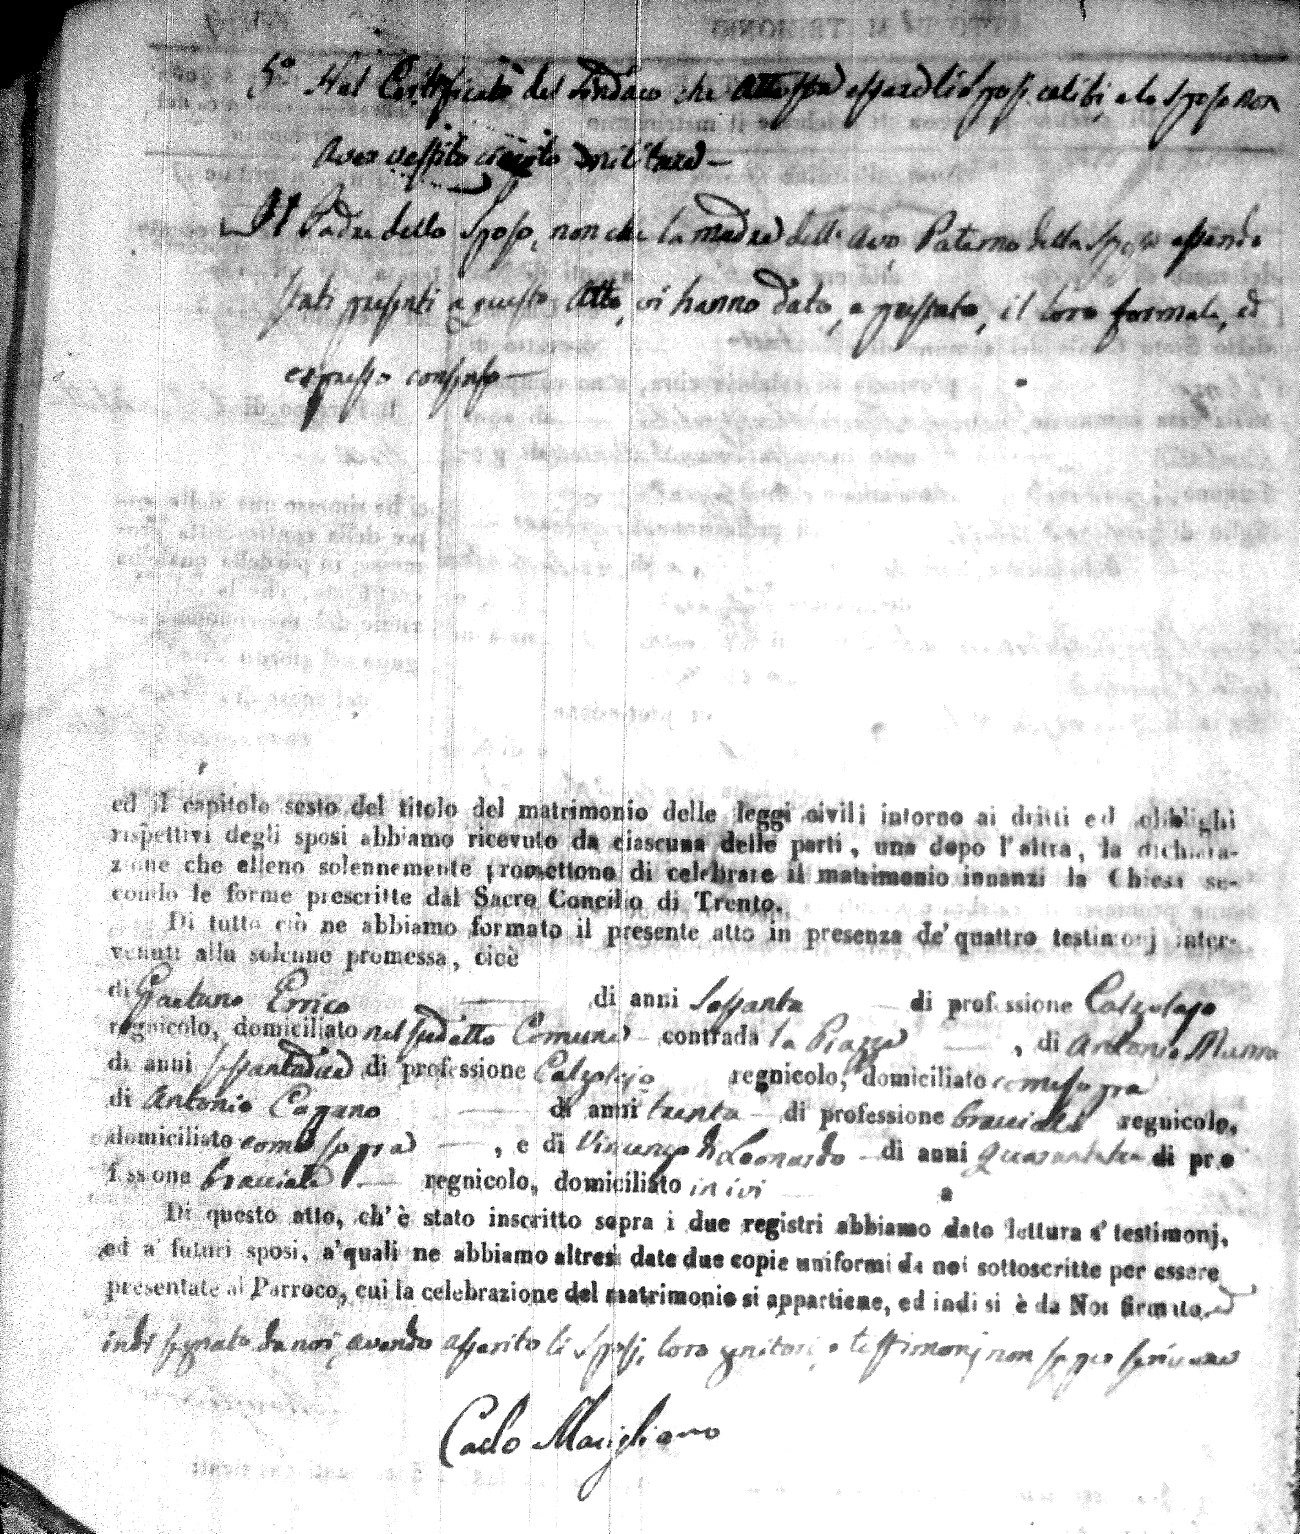 5.° Nel Certificato del Sindaco che attesta essere li Sposi celibi, e lo Sposo non
aver vestito cinto militare —
Il Padre dello Sposo, non che la madre dell' Avo Paterno della Sposa essendo
stati presenti a questo Atto, vi hanno dato, e prestato, il loro formale, ed
espresso consenso —
ed il capitolo sesto del titolo del matrimonio delle leggi civili intorno ai dritti ed obblighi
rispettivi degli sposi abbiamo ricevuto da ciascuna delle parti, una dopo l'altra, la dichiara-
zione che elleno solennemente promettono di celebrare il matrimonio innanzi la Chiesa se-
condo le forme prescritte dal Sacro Concilio di Trento.
Di tutto ciò ne abbiamo formato il presente atto in presenza de' quattro testimonj inter-
venuti alla solenne promessa, cioè
di Gaetano Errico — di anni Sessanta — di professione Calzolajo
regnicolo, domiciliato nel suddetto Comune — contrada la Piazza —, di Antonio Manna
di anni di professione Calzolajo regnicolo, domiciliato come sopra
di Antonio Pagano — di anni trenta — di professione bracciale regnicolo,
domiciliato come sopra —, e di Vincenzo di Leonardo — di anni di pro
fessione bracciale — regnicolo, domiciliato in ivi
Di questo atto, ch'è stato inscritto sopra i due registri abbiamo dato lettura a' testimonj,
ed a' futuri sposi, a' quali ne abbiamo altresì date due copie uniformi da noi sottoscritte per essere
presentate al Parroco, cui la celebrazione del matrimonio si appartiene, ed indi si è da Noi firmato
indi segnato da noi, avendo asserito li Sposi, loro genitori, e testimonj non saper scrivere
Carlo Marigliano